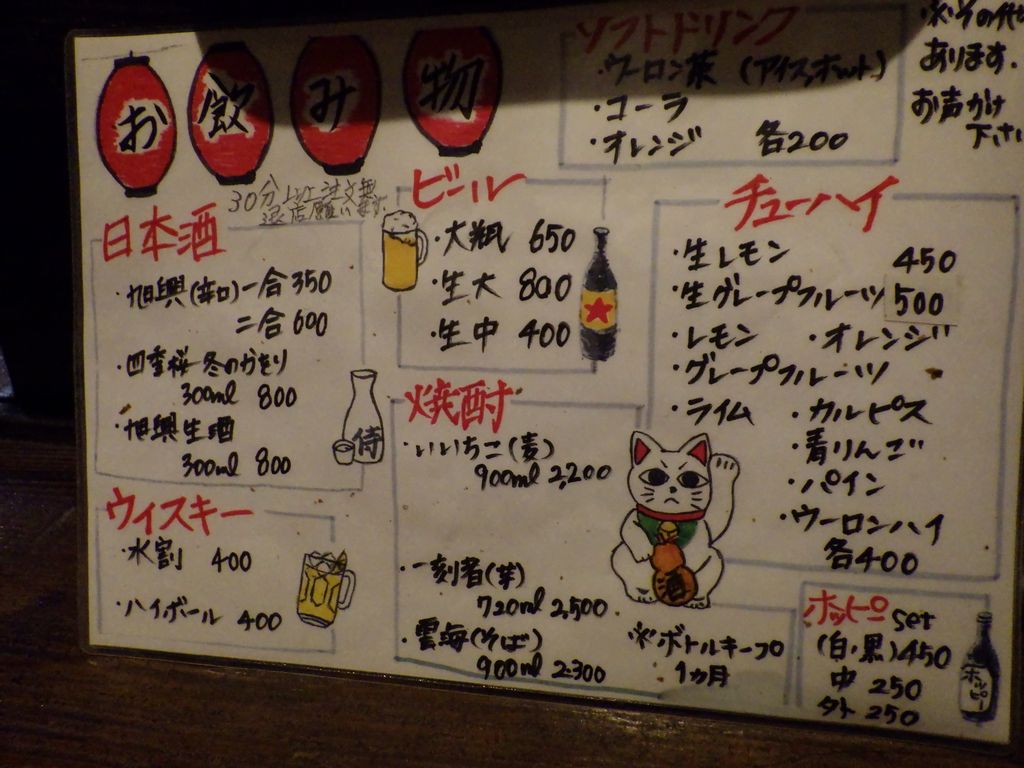 お飲み物
30分以上注文無
退店願います
日本酒
・旭興(辛口)一合 350
二合 600
・四季桜 冬のかをり
300ml 800
・旭興生酒
300ml 800
ウィスキー
・水割 400
・ハイボール 400
ビール
・大瓶 650
・生大 800
・生中 400
焼酎
・いいちこ(麦)
900ml 2,200
・一刻者(芋)
720ml 2,500
・雲海(そば)
900ml 2300
※ボトルキープ
1ヵ月
侍
酒
ソフトドリンク
・ウーロン茶 (アイス,ホット)
・コーラ
・オレンジ 各200
※その他
あります。
お声かけ
下さい
チューハイ
・生レモン 450
・生グレープフルーツ 500
・レモン ・オレンジ
・グレープフルーツ
・ライム ・カルピス
・青りんご
・パイン
・ウーロンハイ
各400
ホッピーset
(白・黒)450
中 250
外 250
ホッピー